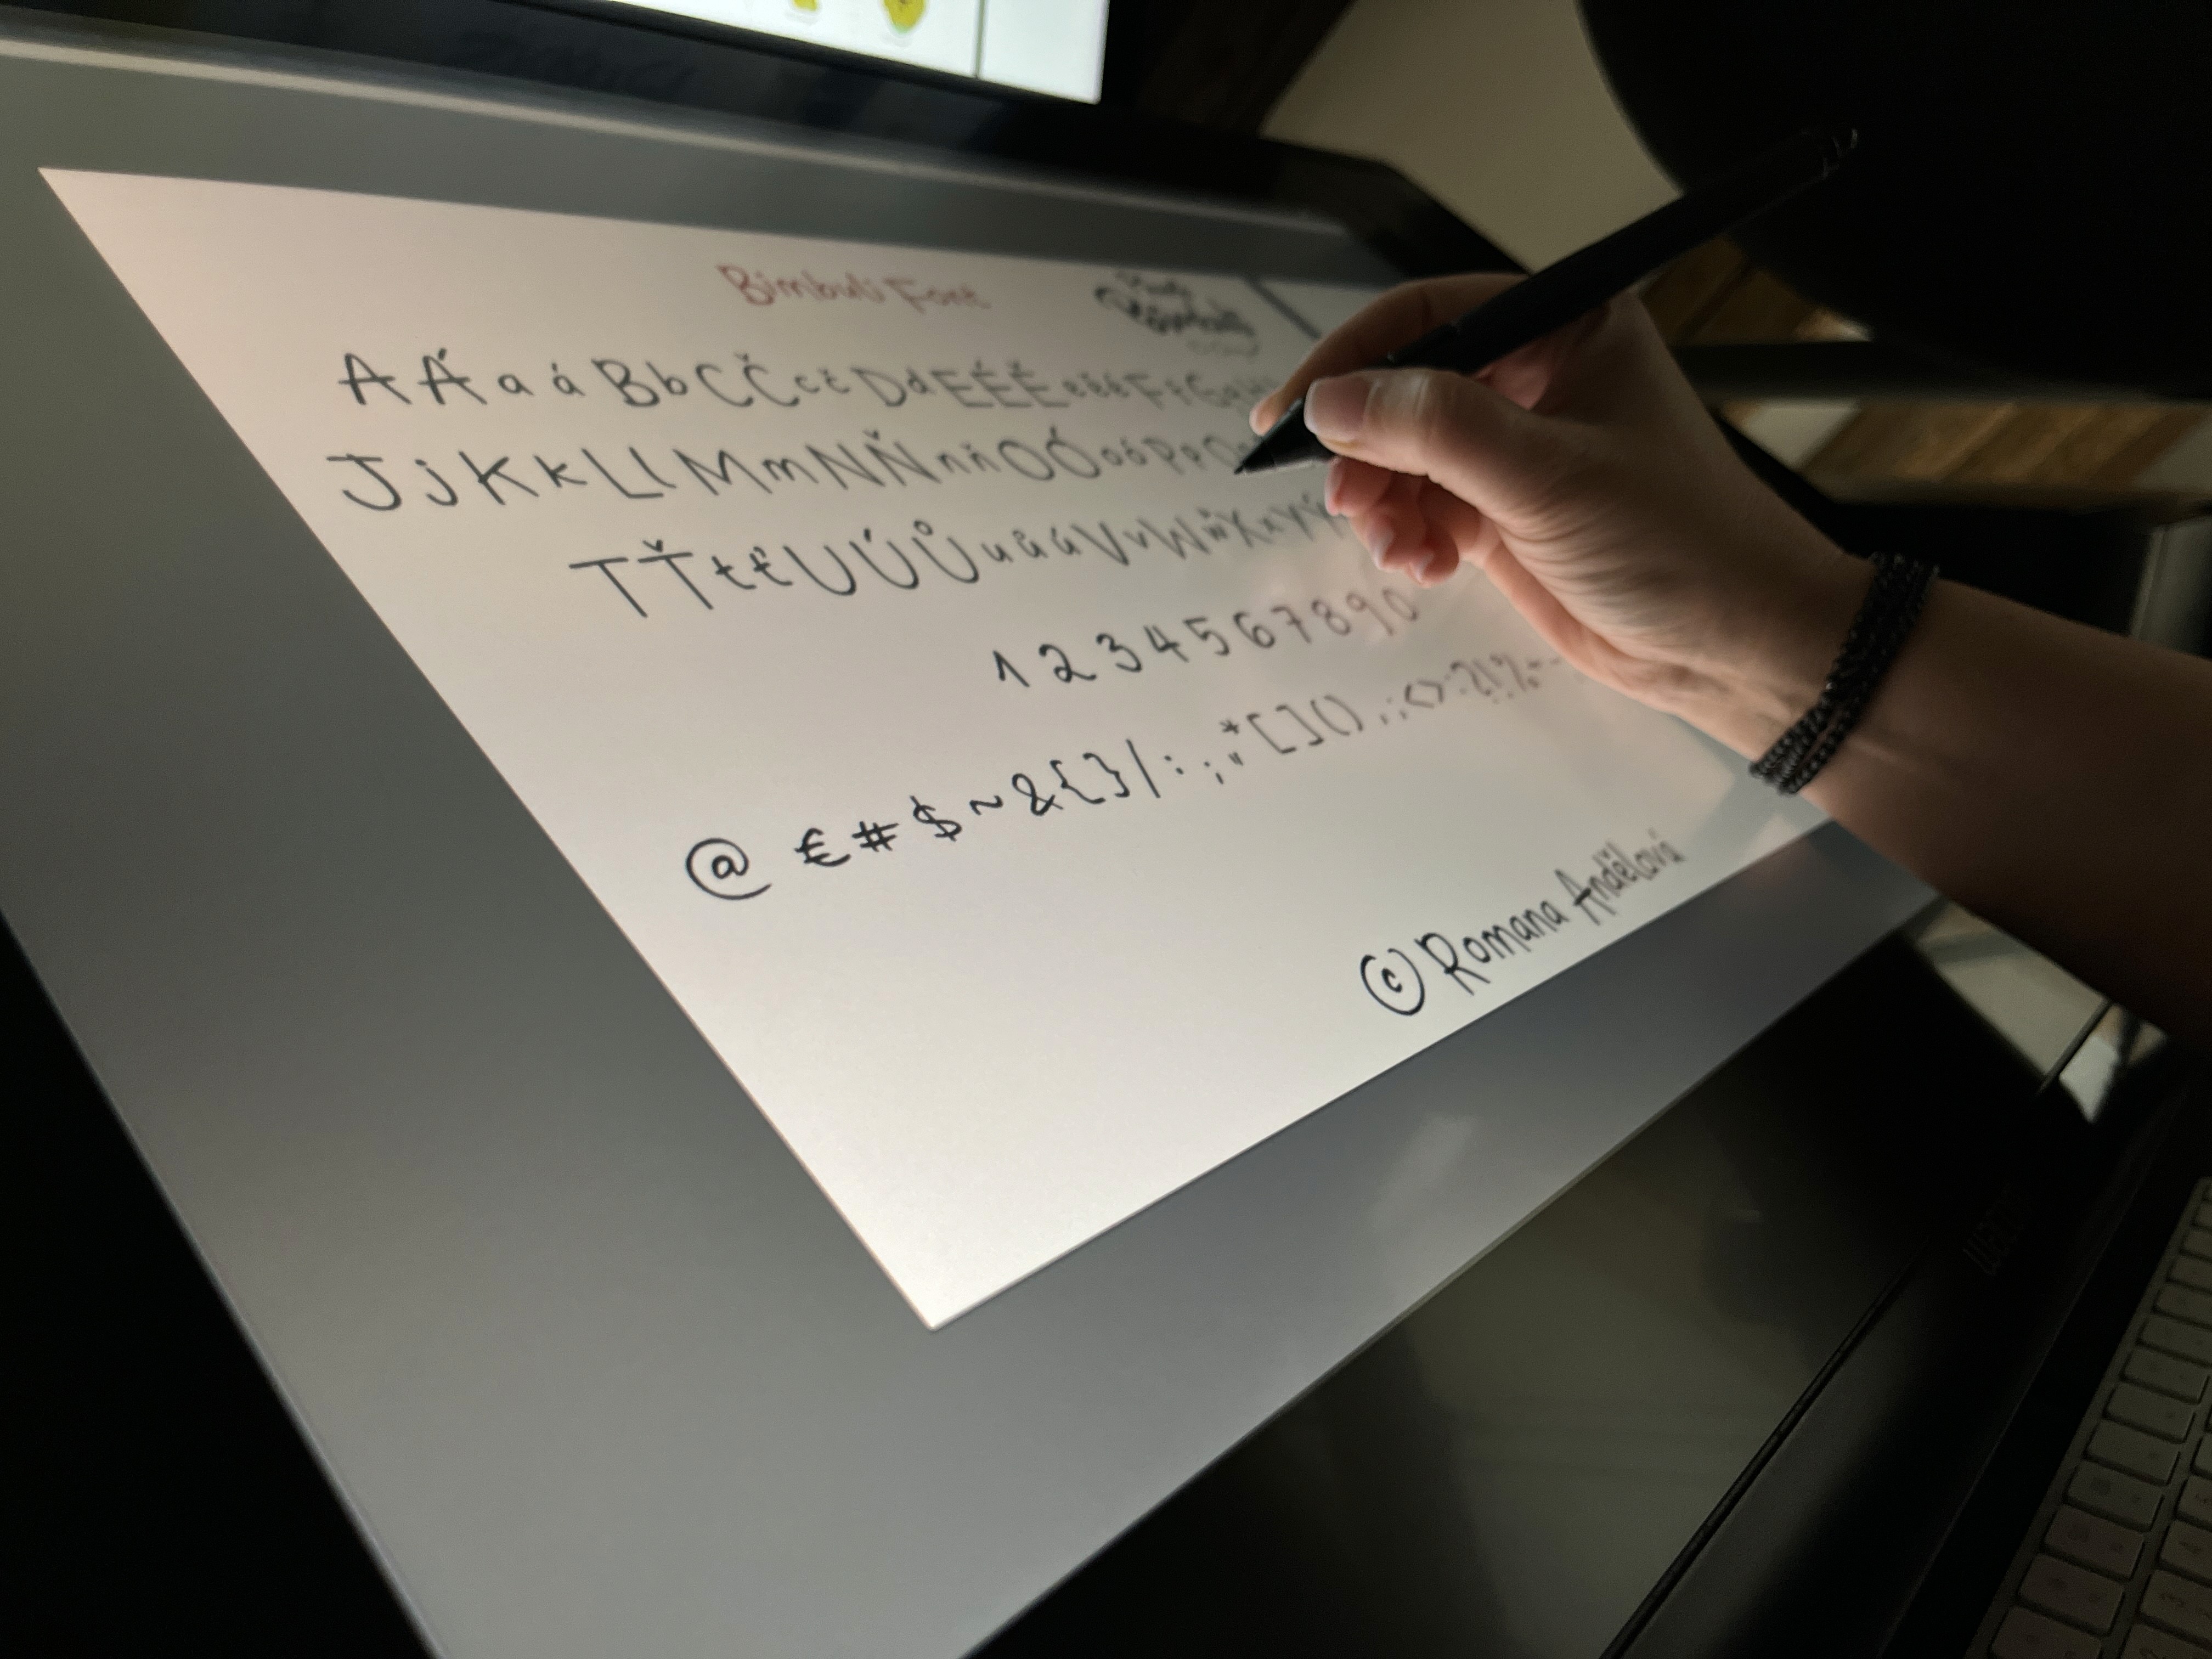 Bimbuli Font
A Á a á B b C Č c č D d E É Ě e ě é F f G g
J j K k L l M m N Ň n ň O Ó o ó P p Q
T Ť t ť U Ú Ů u ů ú V v W w X x Y Ý
1 2 3 4 5 6 7 8 9 0
@ € # $ ~ & { } | : ; * " [ ] ( ) , ; < > : ? ! % + -
© Romana Andělová
wacom